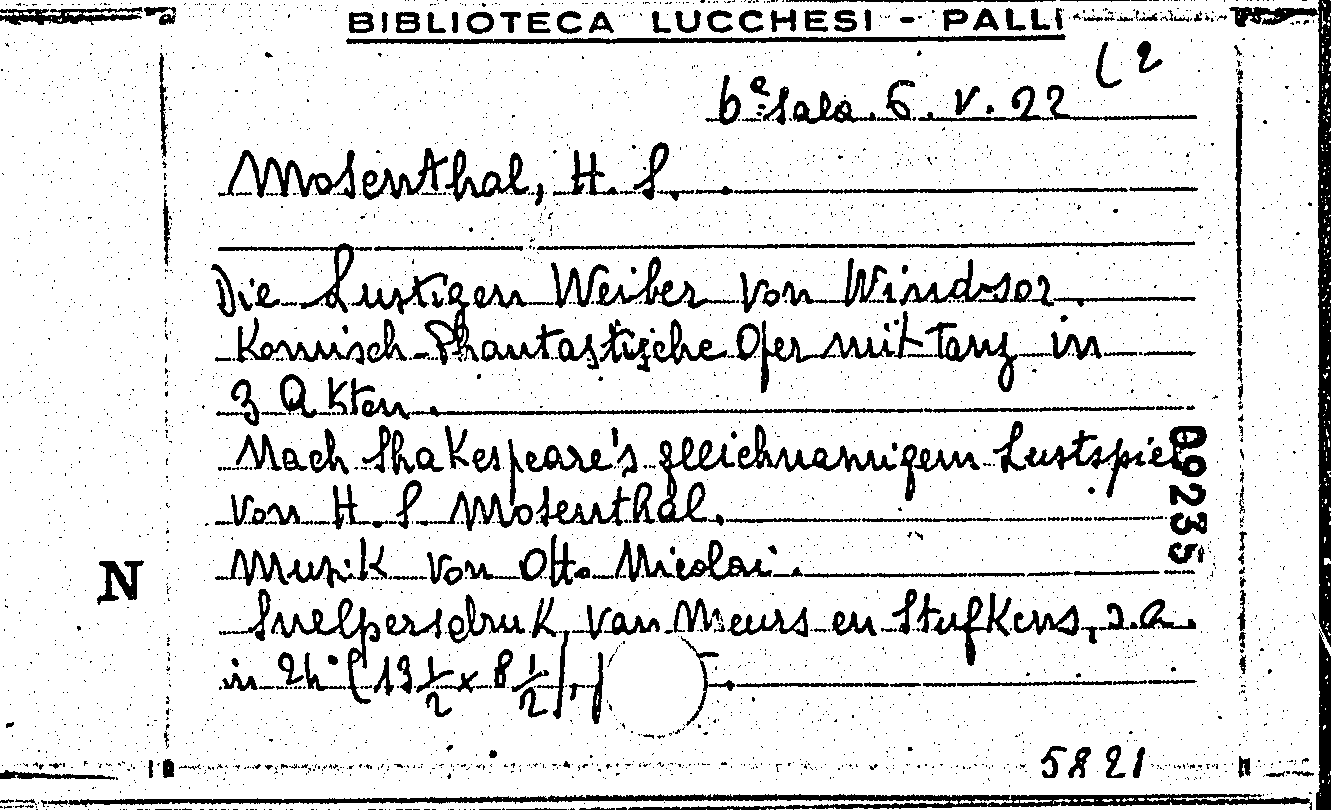 BIBLIOTECA LUCCHESI - PALLI
(2
6ª Sala. 6. V. 22
Mosenthal, H. S.
Die Lustigen Weiber von Windsor.
Komisch-Phantastische Oper mit Tanz in
3 Akten.
Nach Shakespeare's gleichnamigem Lustspiel
von H. S. Mosenthal.
Musik von Otto Nicolai.
Snelpersdruk van Meurs en Stufkens, s.a.
in 24° (13 1/2 x 8 1/2),
09235
N
5821